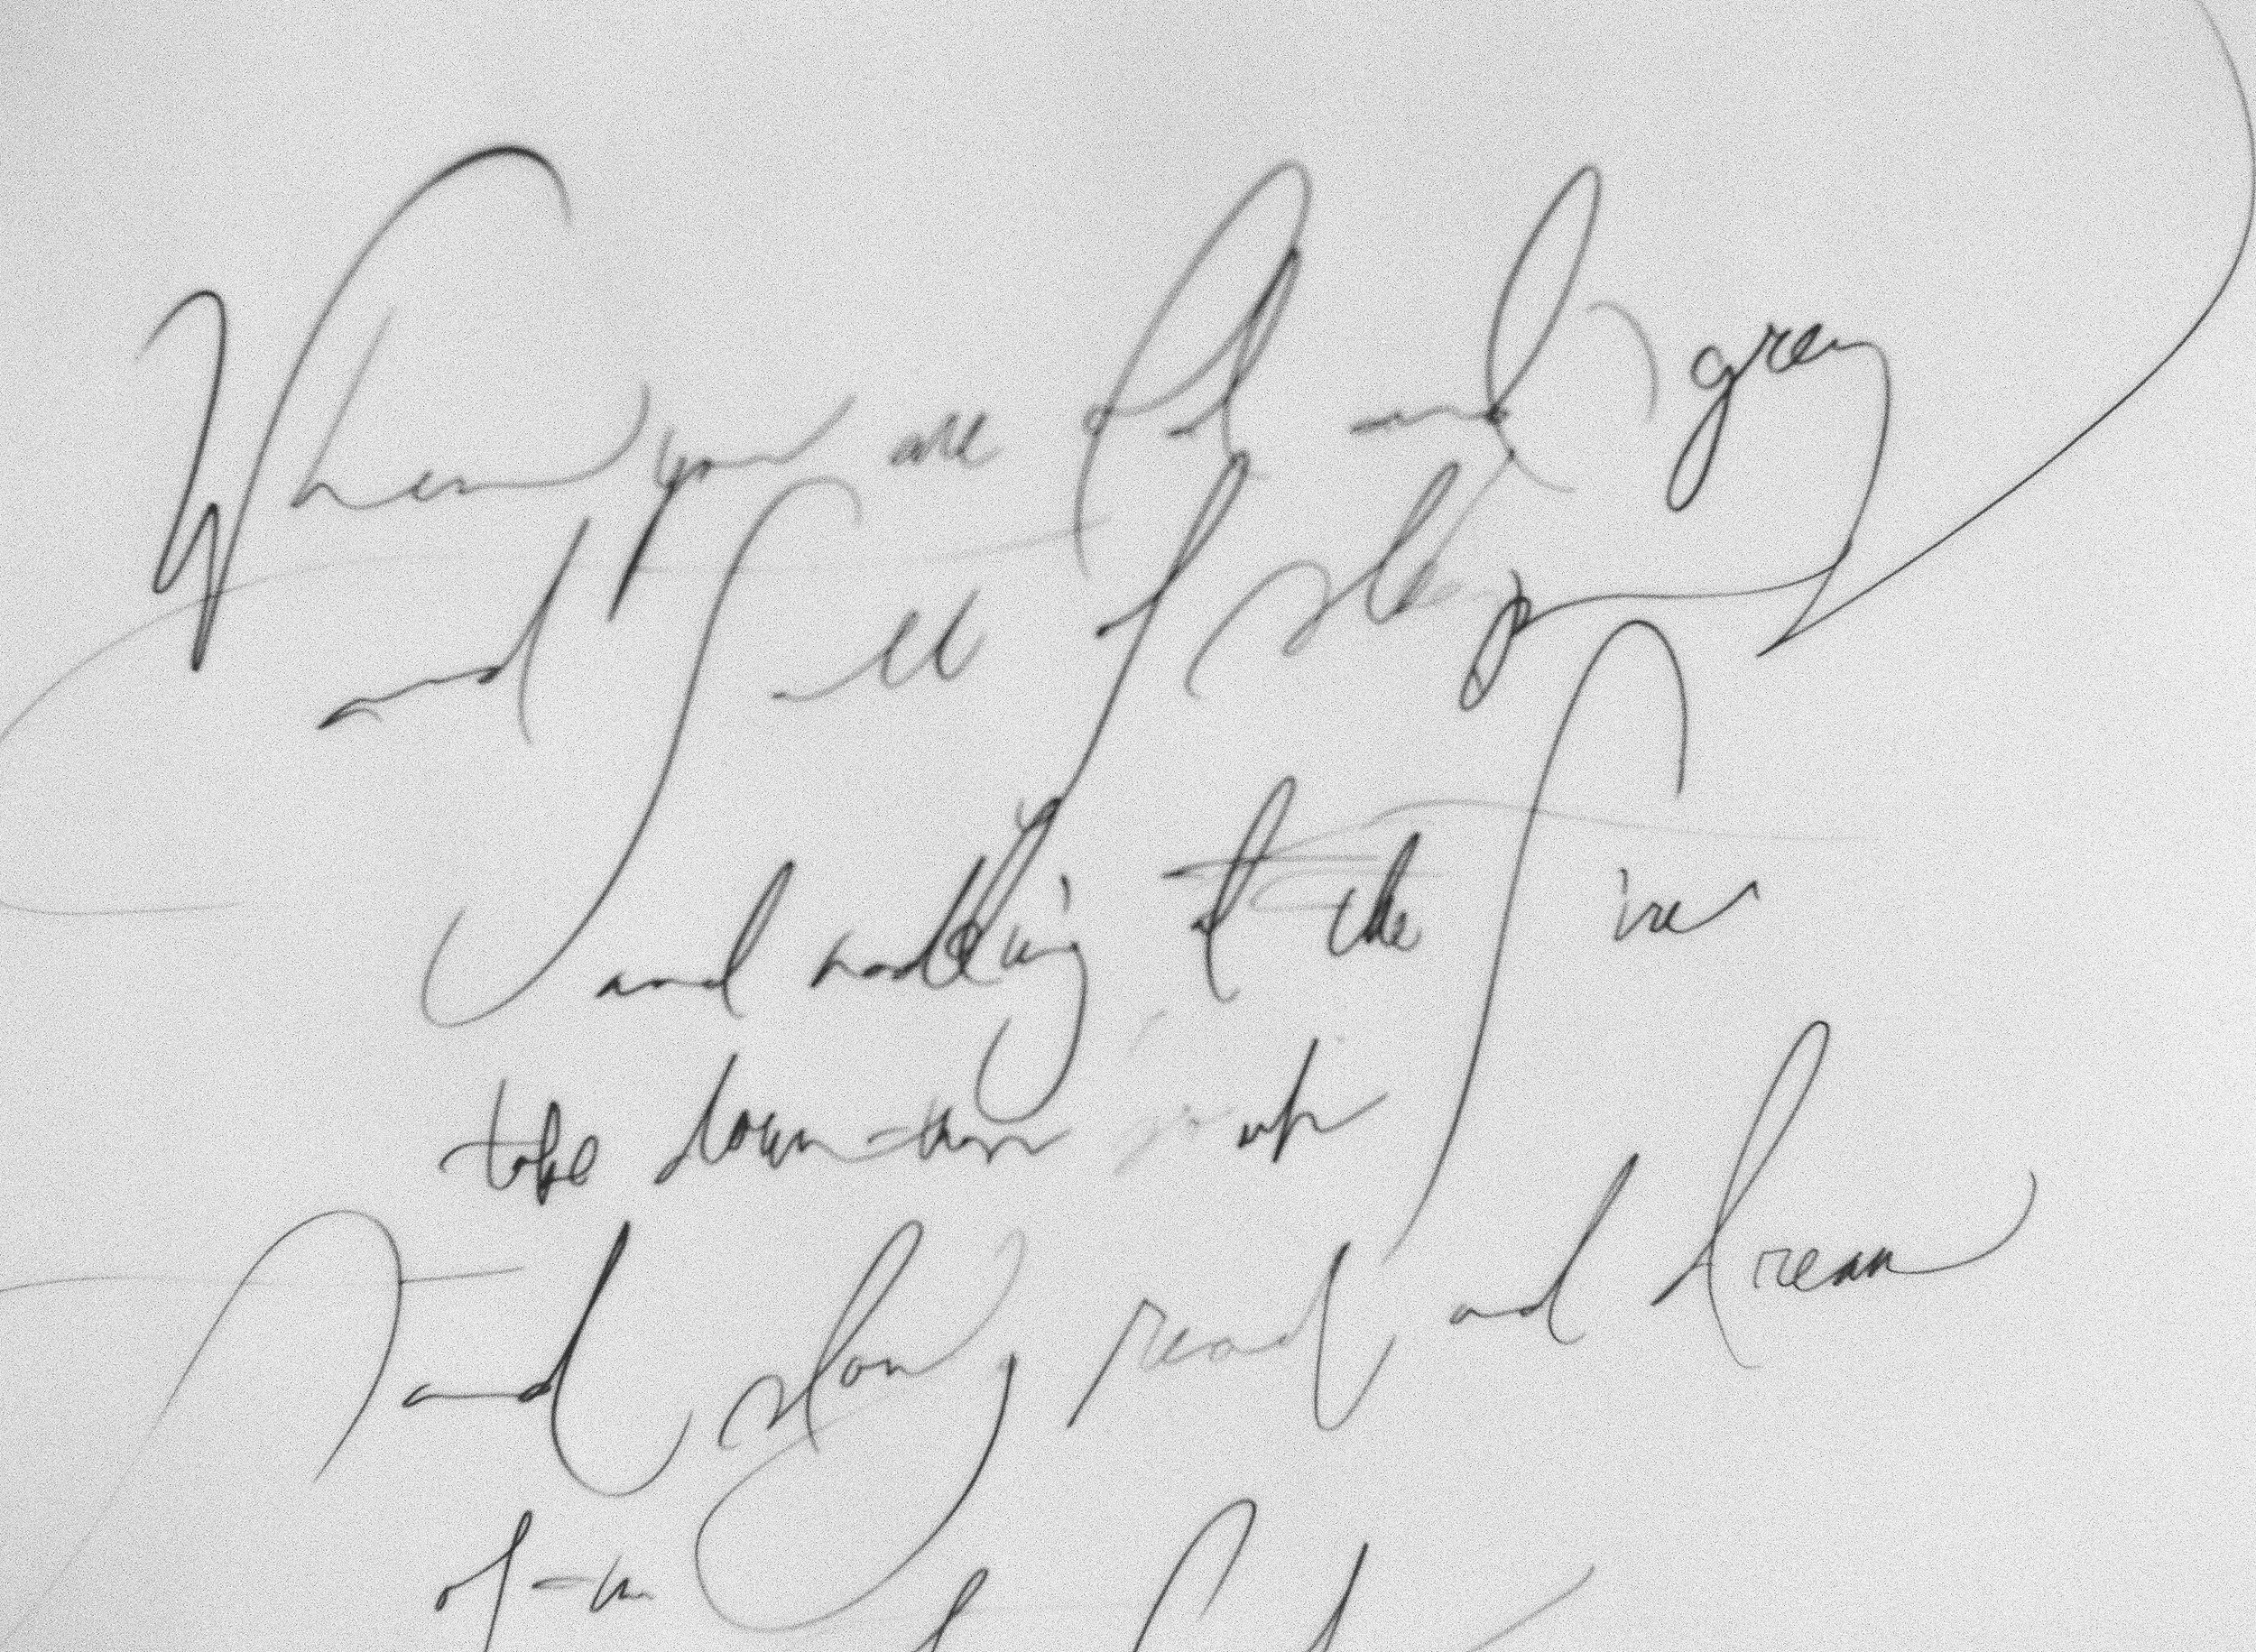 When you are old and grey
and full of sleep
and nodding at the fire
take down this
and slowly read and dream
of the